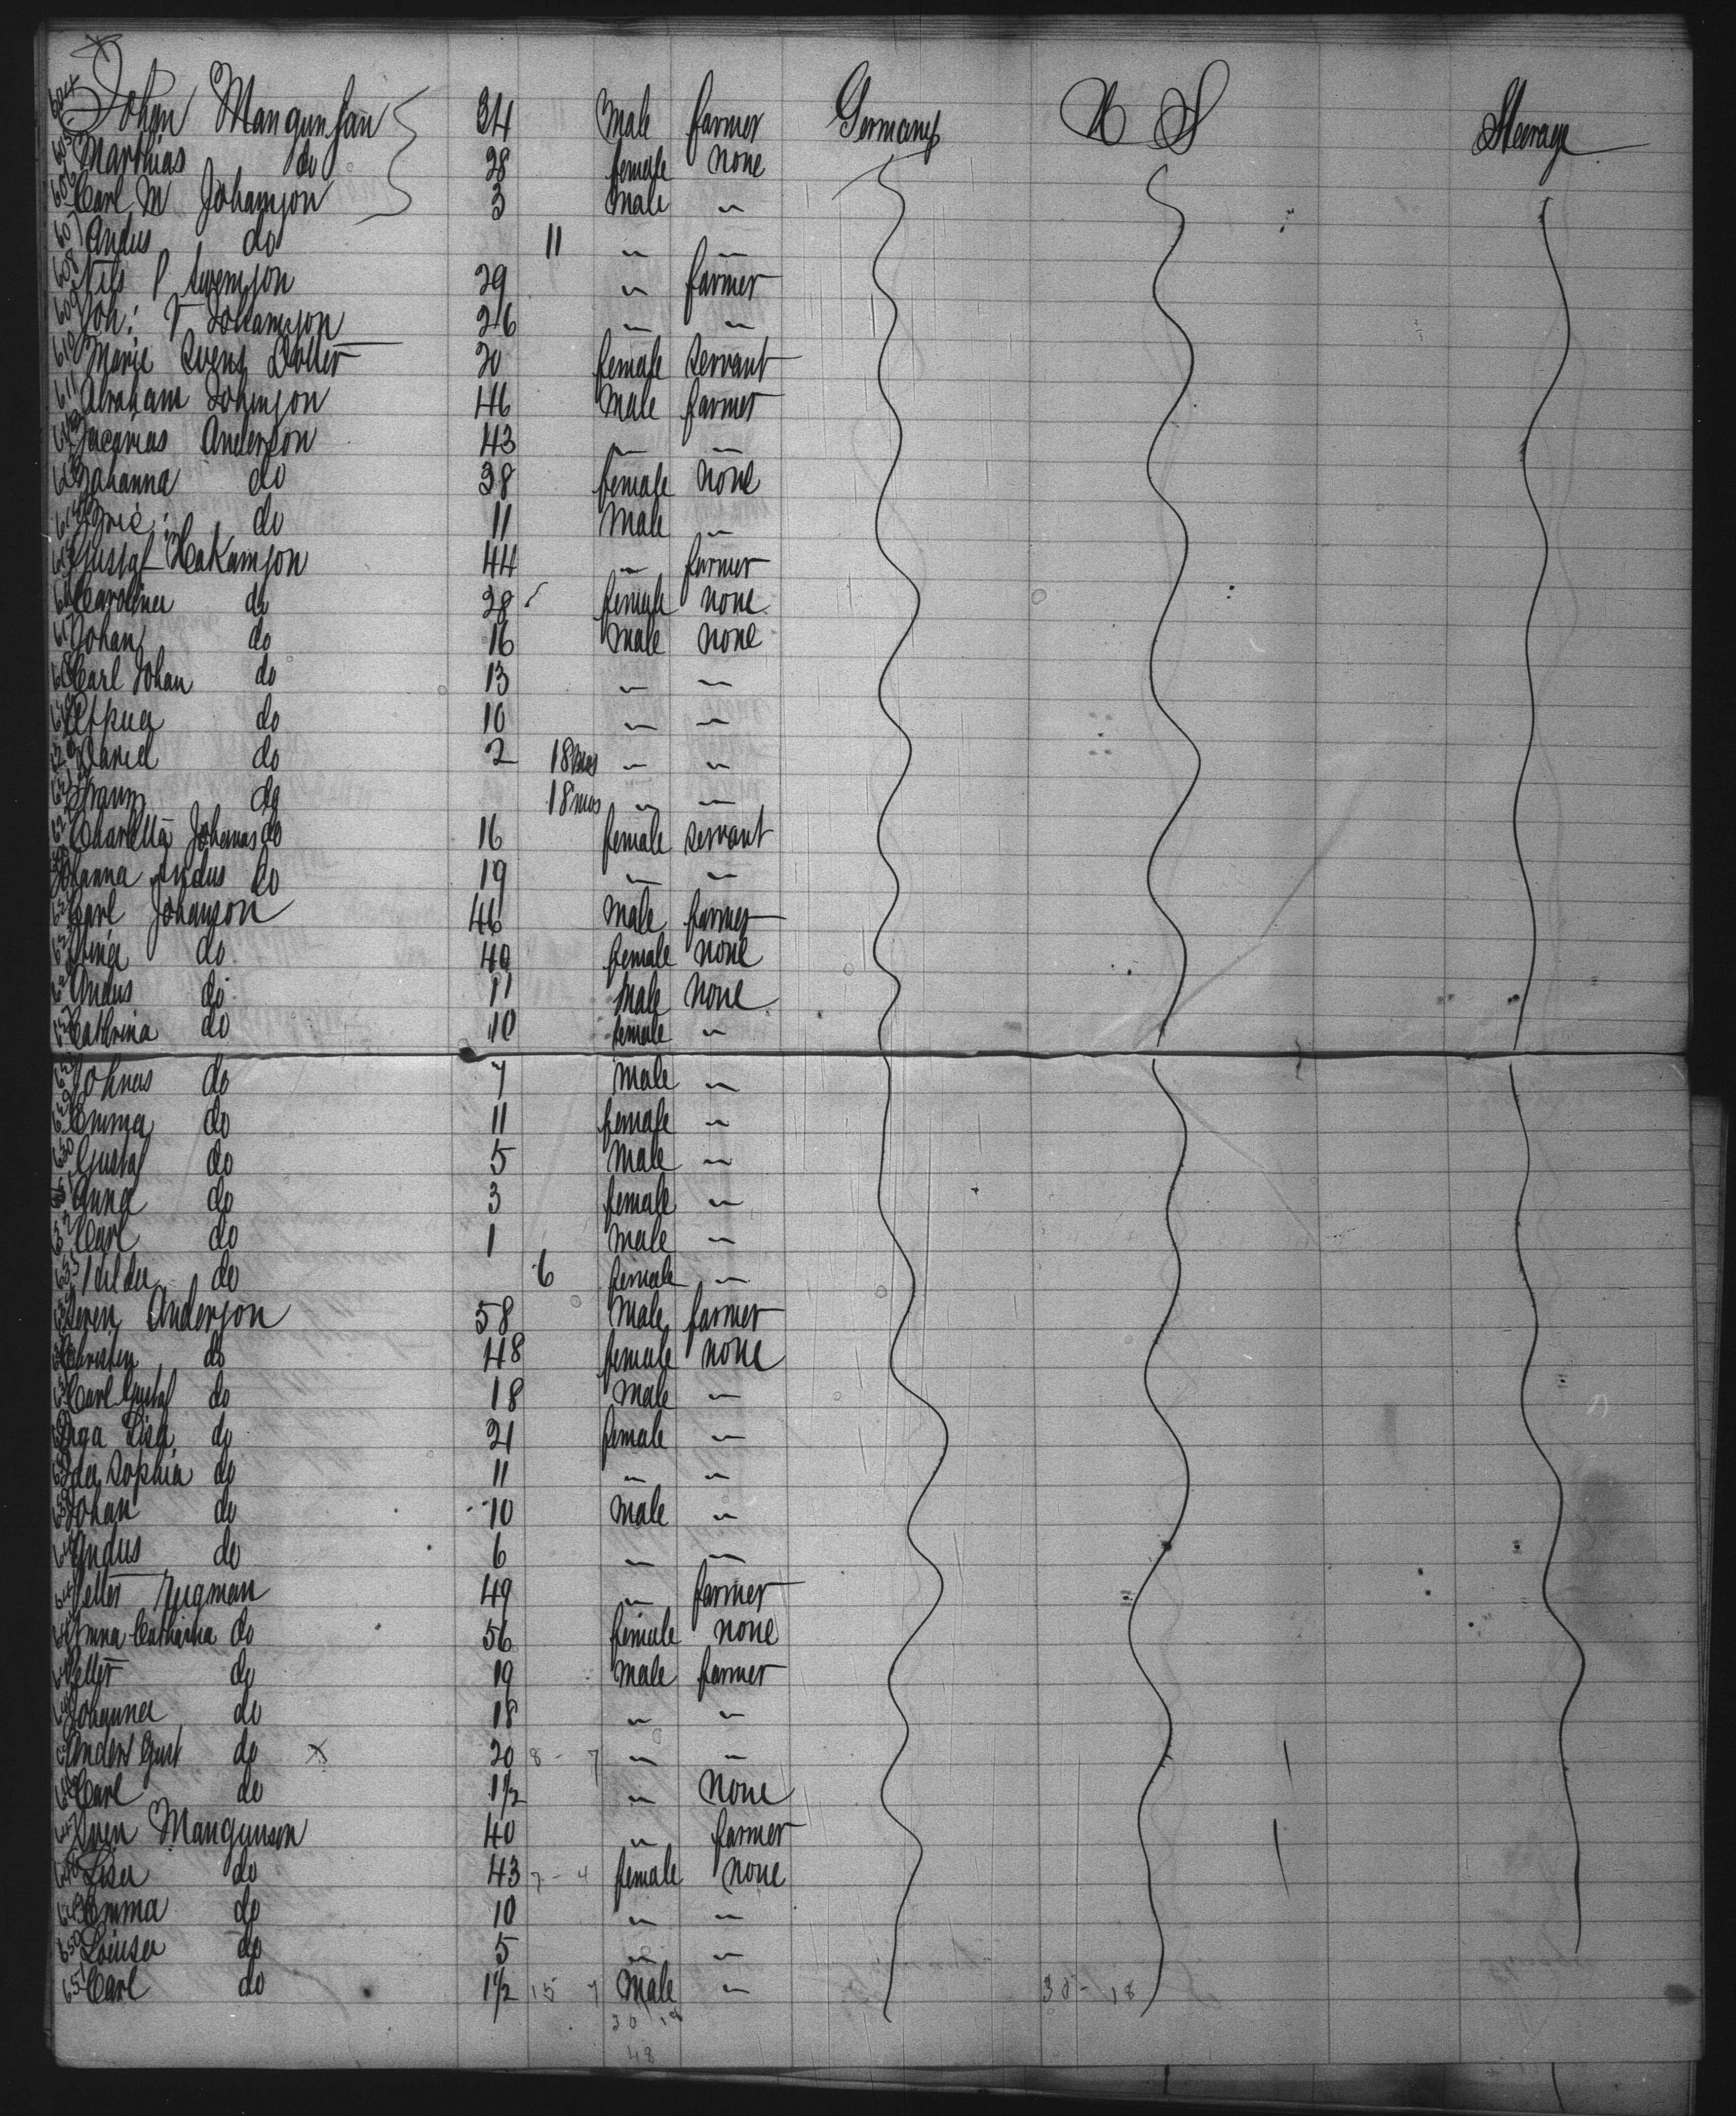 604 Johan Mangunsan 34 male farmer Germany U S Steerage
605 Matthias do 28 female none
606 Carl M Johansson 3 male "
607 Andus do 11 " "
608 Nils P Svensson 29 " farmer
609 Joh: P Johansson 26 " "
610 Marie Svens Dotter 20 female servant
611 Abraham Johnson 46 male farmer
612 Zacarias Anderson 43 " "
613 Johanna do 38 female none
614 do 11 male "
615 Gustaf Hakanson 44 " farmer
616 Carolina do 28 female none
617 Johan do 16 male none
618 Carl Johan do 13 " "
619 do 10 " "
620 David do 2 18 mos " "
621 Frans do 18 mos " "
622 Charlotta Johannes do 16 female servant
623 Johanna Andus do 19 " "
624 Carl Johanson 46 male farmer
625 Stina do 40 female none
626 Andus do 11 male none
627 Cathrina do 10 female "
628 Johnas do 7 male "
629 Emma do 11 female "
630 Gustaf do 5 male "
631 Anna do 3 female "
632 Carl do 1 male "
633 Hilda do 6 female "
634 Sven Anderson 58 male farmer
635 Christin do 48 female none
636 Carl Gustaf do 18 male "
637 Inga Lisa do 21 female "
638 Ida Sophia do 11 " "
639 Johan do 10 male "
640 Andus do 6 " "
641 Petter 49 " farmer
642 Anna Cathrina do 56 female none
643 Petter do 19 male farmer
644 Johanna do 18 " "
645 Anders Gust do x 20 8 - 7 " "
646 Carl do 1½ " none
647 Sven Mangunson 40 " farmer
648 Lisa do 43 7 - 4 female none
649 Emma do 10 " "
650 Louisa do 5 " "
651 Carl do 1½ 15 7 male " 30 - 18
30 18
48